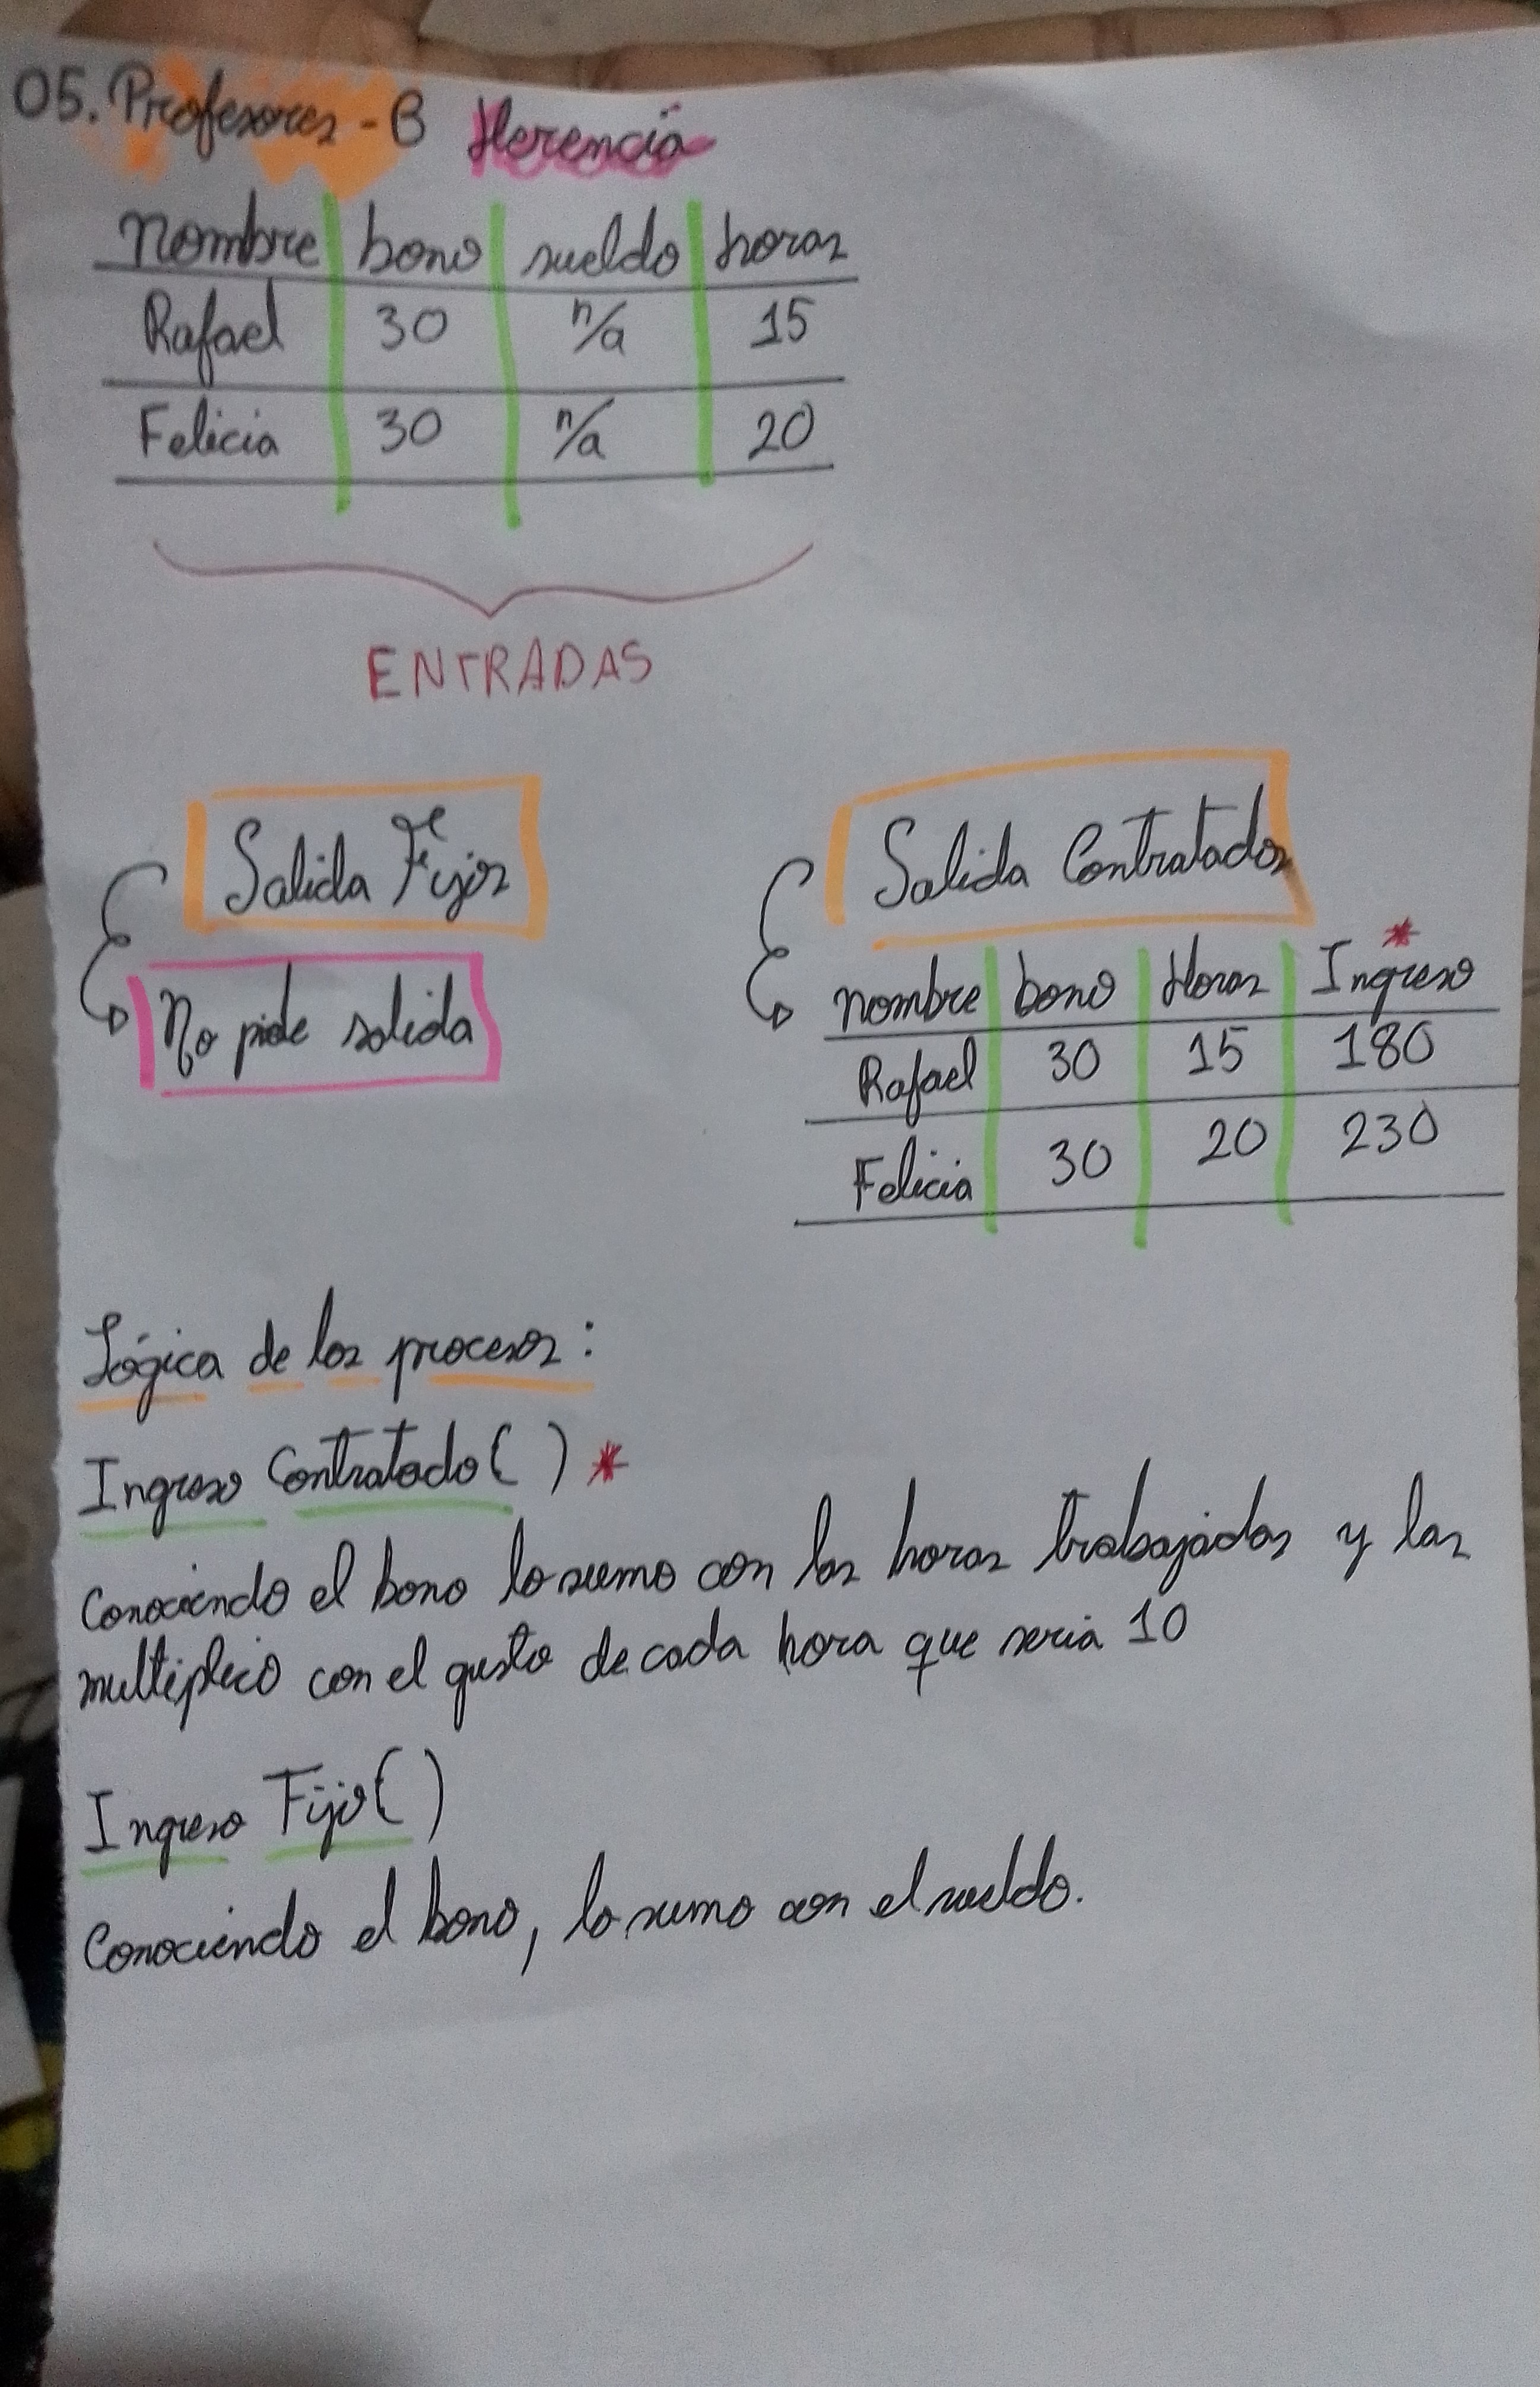 05. Profesores - B Herencia
nombre bono sueldo horas
Rafael 30 n/a 15
Felicia 30 n/a 20
ENTRADAS
Salida Fijos
No pide salida
Salida Contratados
*
nombre bono Horas Ingreso
Rafael 30 15 180
Felicia 30 20 230
Lógica de los procesos:
Ingreso Contratado( ) *
Conociendo el bono lo sumo con las horas trabajadas y las
multiplico con el gusto de cada hora que seria 10
Ingreso Fijo( )
Conociendo el bono, lo sumo con el sueldo.